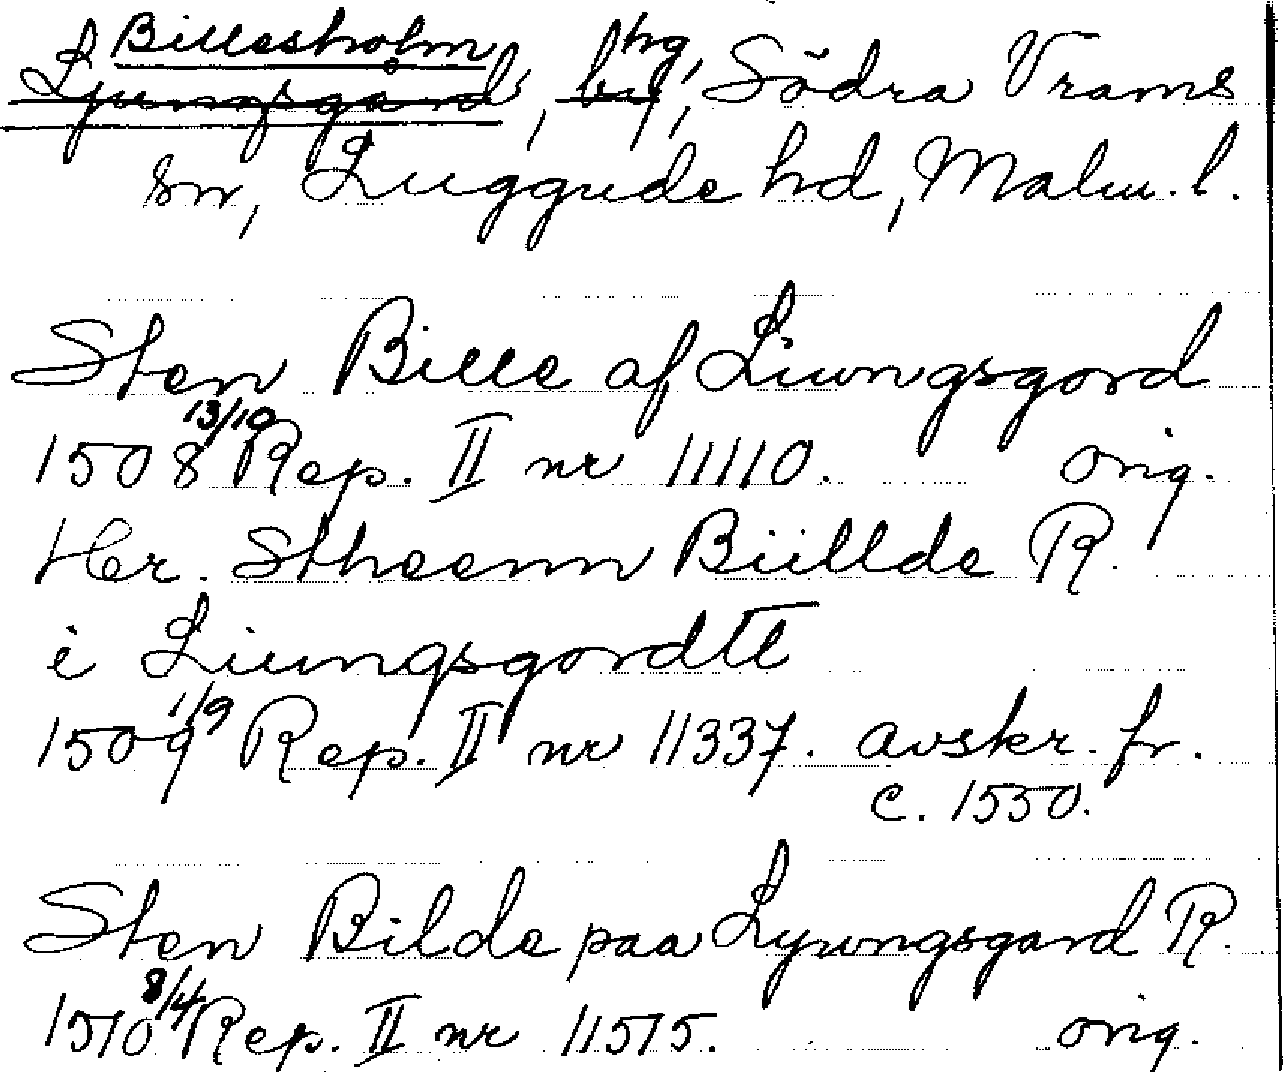 Billesholm hg,
Ljungsgård, by, Södra Vrams
sn, Luggude hd, Malm. l.
Sten Bille af Liwngsgord
1508 13/10 Rep. II nr 11110. orig.
Her. Stheenn Biillde R.
i Liungsgordtt
1509 1/9 Rep. II nr 11337. avskr. fr.
c. 1550.
Sten Bilde paa Lywngsgard R.
1510 8/4 Rep. II nr 11515. orig.